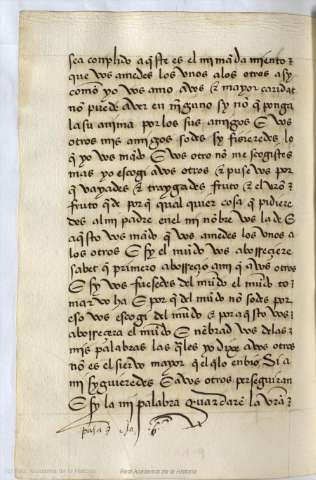 sea conplido aq̃ste es el mi mãdamiento ꝛ
que vos amedes los vnos alos otros asy
como yo vos amo a vos ⁊ mayor caridat
nõ puede aver en nĩguno sy nõ q̃ ponga
la su anima por los sus amigos E vos
otros mis amigos sodes sy fisieredes lo
q̃ yo vos mãdo E vos otro nõ me escogistes
mas yo escogi a vos otros ⁊ puse vos por
q̃ vayades ⁊ traygades fruto ⁊ el vr̃o ꝛ
fruto q̃de por q̃ qual quier cosa q̃ pidiere
des al mi padre en el mi nõbre vos la de E
aq̃sto vos mãdo q̃ vos amedes los vnos a
los otros E sy el mũdo vos aborresciere
sabet q̃ primero aborrescio a mi q̃ a vos otros
E sy vos fuesedes del mũdo el mũdo to
mar vos ha E por q̃ del mũdo nõ sodes por
eso vos escogi del mũdo ⁊ por aq̃sto vos ꝛ
aborrescera el mũdo E nẽbrad vos delas ꝛ
mis palabras las q̃les yo dixe a vos otros
nõ es el siervo mayor q̃ el q̃ lo enbio Si a
mi syguieredes E a vos otros perseguiran
E sy la mi palabra guardarẽ la vr̃a ꝛ
Real Academia de la Historia